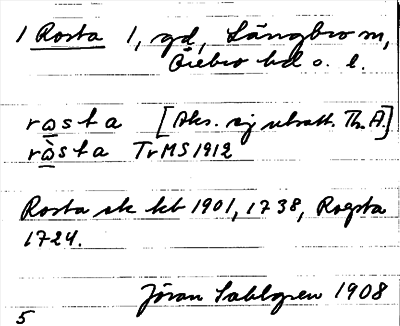 1 Rosta 1, gd, Längbro sn,
Örebro hd o. l.
rasta [Aks. ej utsatt. Th. A.]
ràsta TrMS 1912
Rosta sk kb 1901, 1738, Rogsta
1724.
Jöran Sahlgren 1908
5